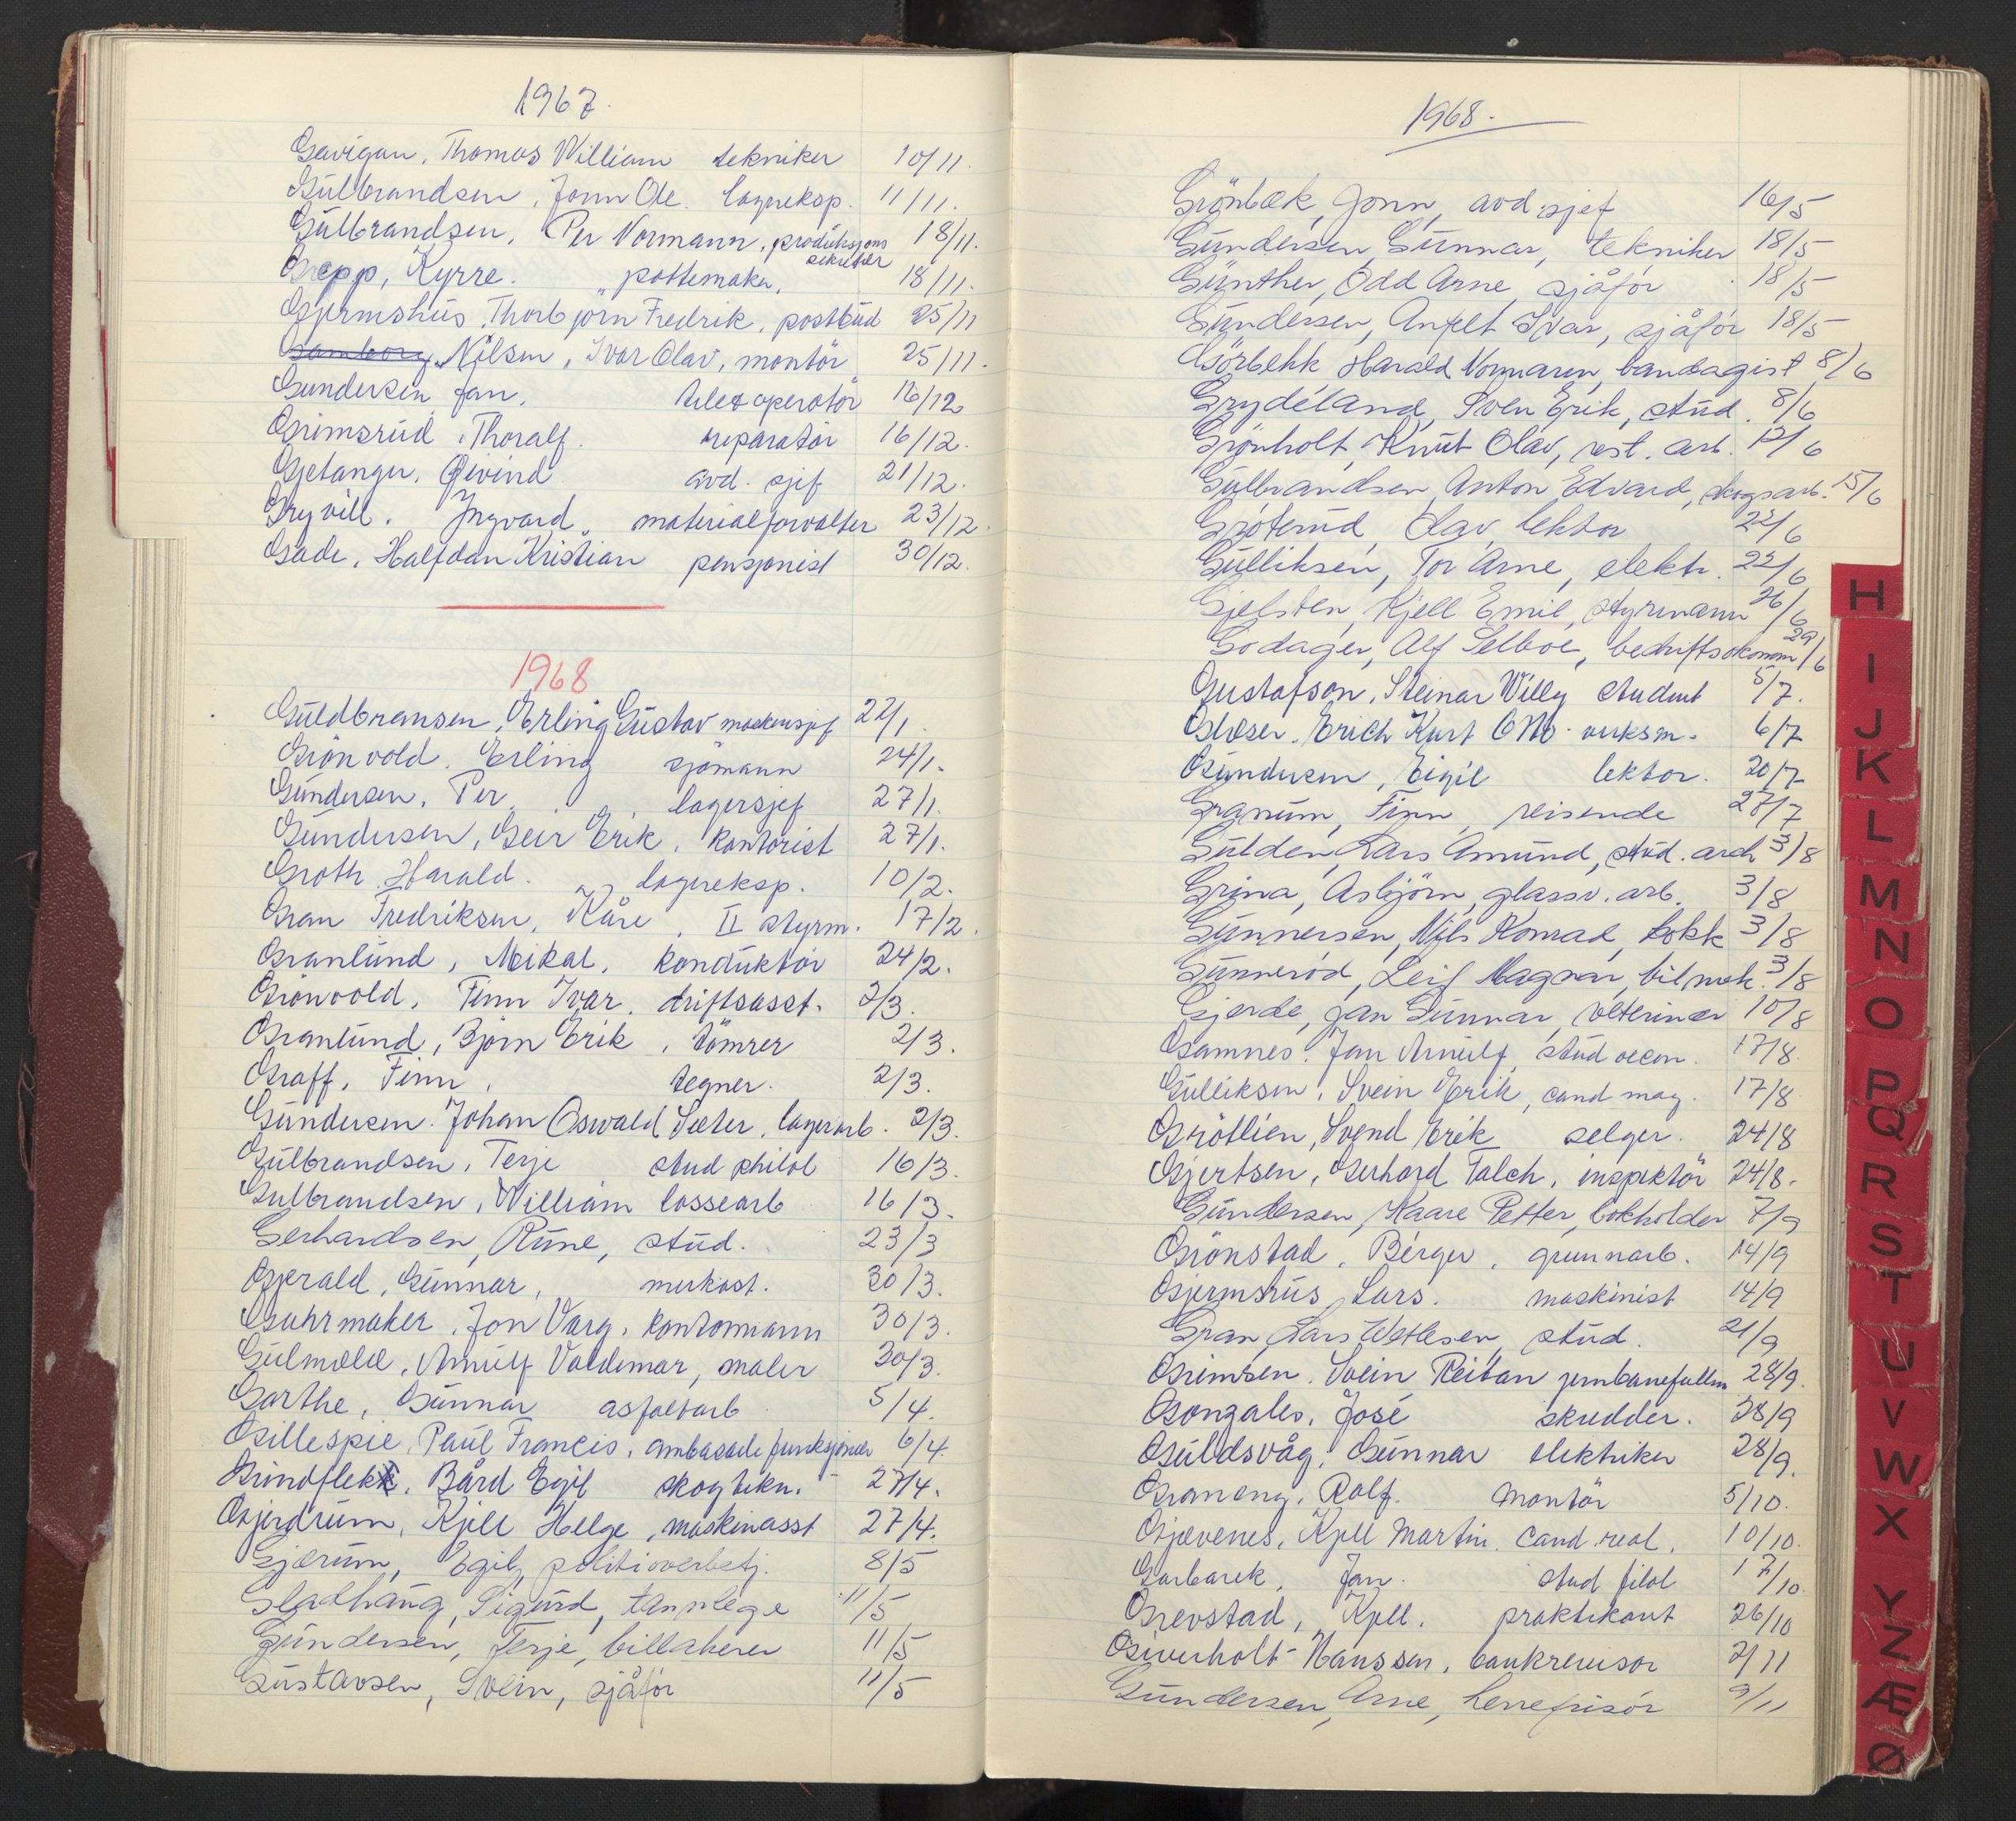 1967.
Gavigan, Thomas William tekniker 10/11.
Gulbrandsen, Jonn Ole. lagereksp. 11/11.
Gulbrandsen, Per Normann, produksjons sekretær 18/11.
Grepp, Kyrre. pottemaker, 18/11.
Gjermshus, Thorbjørn Fredrik, postbud 25/11
Gamborg Nilsen, Ivar Olav, montör 25/11.
Gundersen Jan, telexoperatör 16/12
Grimsrud, Thoralf. reparatör 16/12.
Gjetanger, Øivind avd. sjef 21/12.
Gryvill, Ingvard, materialforvalter 23/12.
Gade, Halfdan Kristian pensjonist 30/12.
1968
Guldbransen, Erling Gustav maskinsjef 22/1.
Grönvold, Erling sjömann 24/1.
Gundersen, Per, lagersjef 27/1.
Gundersen, Geir Erik, kontorist 27/1.
Groth Harald. lagereksp. 10/2.
Gran Fredriksen, Kåre, II styrm. 17/2.
Granlund, Mikal, konduktör 24/2.
Grönvold, Finn Ivar, driftsasst. 2/3.
Granlund, Björn Erik, tömrer 2/3.
Graff, Finn, tegner. 2/3.
Gundersen. Johan Oswald Sæter, lagerarb. 2/3.
Gulbrandsen, Terje stud philol 16/3.
Gulbrandsen, William lossearb 16/3.
Gerhardsen, Rune, stud. 23/3
Gjerald, Gunnar, merkost. 30/3.
Guhrmaker, Jon Varg, kontormann 30/3.
Gulmold, Arnulf Valdemar, maler 30/3.
Garthe, Gunnar asfaltarb 5/4.
Gillespie, Paul Francis, ambasade funksjonær 6/4.
Grindflekk, Bård Egil skogtekn. 27/4.
Gjerdrum, Kjell Helge, maskinasst 27/4.
Gjærum, Egil, politioverbetj. 8/5
Gladhaug, Sigurd, tannlege 11/5
Gundersen, Terje, billakerer 11/5
Gustavsen, Svein, sjåför 11/5
1968.
Grönbæk, Jonn, avd sjef 16/5
Gundersen, Gunnar, tekniker 18/5
Günther, Odd Arne, sjåför 18/5
Gundersen, Anfelt Ivar, sjåför 18/5
Görbehk Harald Normann, bandagist 8/6
Grydeland, Sven Erik, stud. 8/6
Grönholt, Knut Olav, rest. arb. 12/6
Gulbrandsen, Anton Edvard, skogsarb. 15/6
Gröterud, Olav, lektor 22/6
Gulliksen, Tor Arne, elektr. 22/6
Gjelsten, Kjell Emil, styrmann 26/6
Godager, Alf Selboe, bedriftsøkonom 29/6
Gustafson, Steinar Willy student 5/7.
Glæser. Erich Kurt Otto. verksm. 6/7
Gundersen, Eigil lektor. 20/7
Granum, Finn, reisende 27/7
Gulden, Lars Amund, stud. arch 3/8
Grina, Asbjörn, glassv. arb. 3/8
Gunnersen, Nils Konrad, kokk 3/8
Gunneröd, Leif Magnar, bilmek. 3/8
Gjerde, Jan Gunnar, veterinær 10/8
Gamnes. Jan Arnulf, stud oecon. 17/8.
Gulliksen, Svein Erik, cand mag. 17/8
Grötlien, Svend Erik selger. 24/8
Gjertsen, Gerhard Falch, inspektör 24/8.
Gundersen, Kaare Petter, bokholder 7/9
Grönstad, Berger, grunnarb. 14/9
Gjermshus, Lars. maskinist 14/9
Gran, Lars Wetlesen, stud. 21/9
Grimsen. Svein Reitan jernbanefullm 28/9.
Gonzales, José skredder. 28/9
Guldsvåg, Gunnar elektriker 28/9.
Graneng, Rolf. montör 5/10.
Gjævenes, Kjell Martin. cand real. 10/10.
Garbarek, Jan. stud filol 17/10.
Grevstad, Kjell. praktikant 26/10
Giverholt-Hanssen, bankrevisor 2/11
Gundersen, Arne, herrefrisör 9/11
H
I
J
K
L
M
N
O
P
Q
R
S
T
U
V
W
X
Y
Z
Æ
Ø